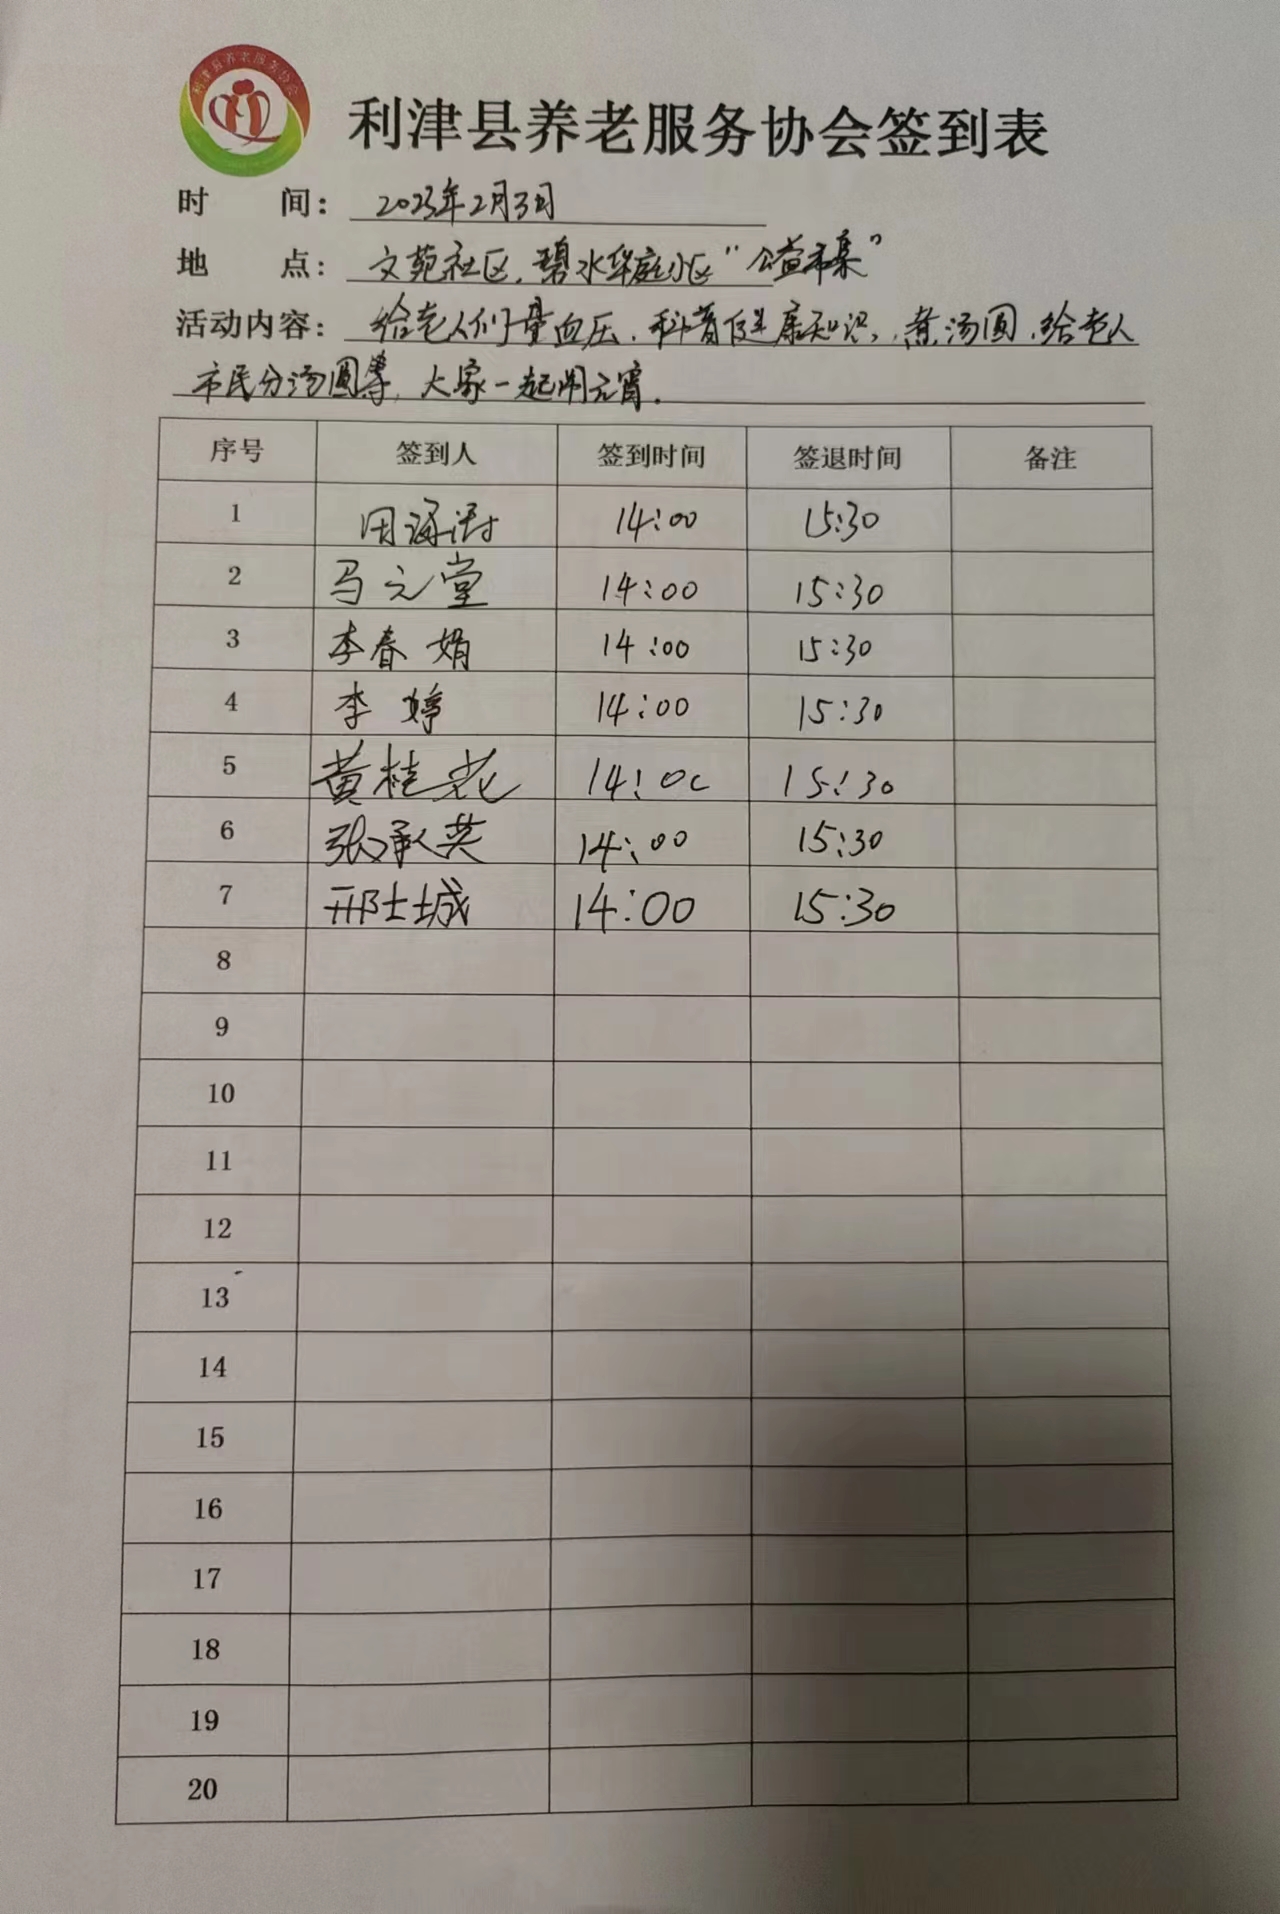 利津县养老服务协会
利津县养老服务协会签到表
时 间: 2023年2月3日
地 点: 文苑社区,碧水华庭小区"公益市集"
活动内容: 给老人们量血压、科普健康知识,煮汤圆,给老人
市民分汤圆等,大家一起闹元宵.
序号 签到人 签到时间 签退时间 备注
1 14:00 15:30
2 马元堂 14:00 15:30
3 李春娟 14:00 15:30
4 李婷 14:00 15:30
5 黄桂花 14:00 15:30
6 张承英 14:00 15:30
7 邢士城 14:00 15:30
8
9
10
11
12
13
14
15
16
17
18
19
20